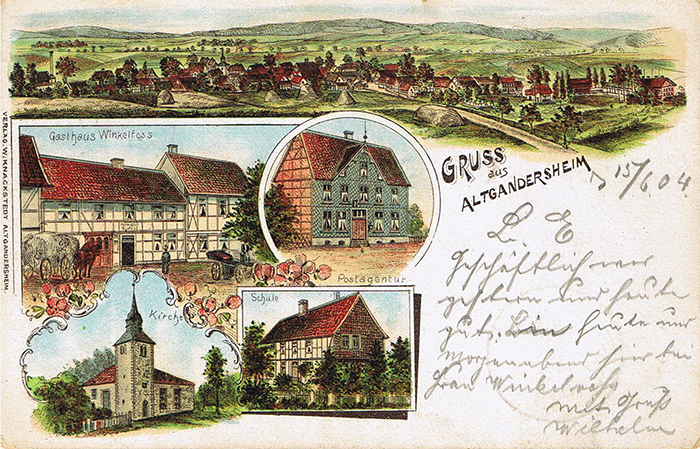 GRUSS
aus
ALTGANDERSHEIM
15/6 04
Gasthaus Winkelfoss
Postagentur
Kirche
Schule
VERLAG. W. KNACKSTEDT ALTGANDERSHEIM.
L. E
Geschäftlich war
gestern und heute
gut. Bin heute und
Morgenabend hier bei
Frau Winkelvoss
Mit Gruß
Wilhelm